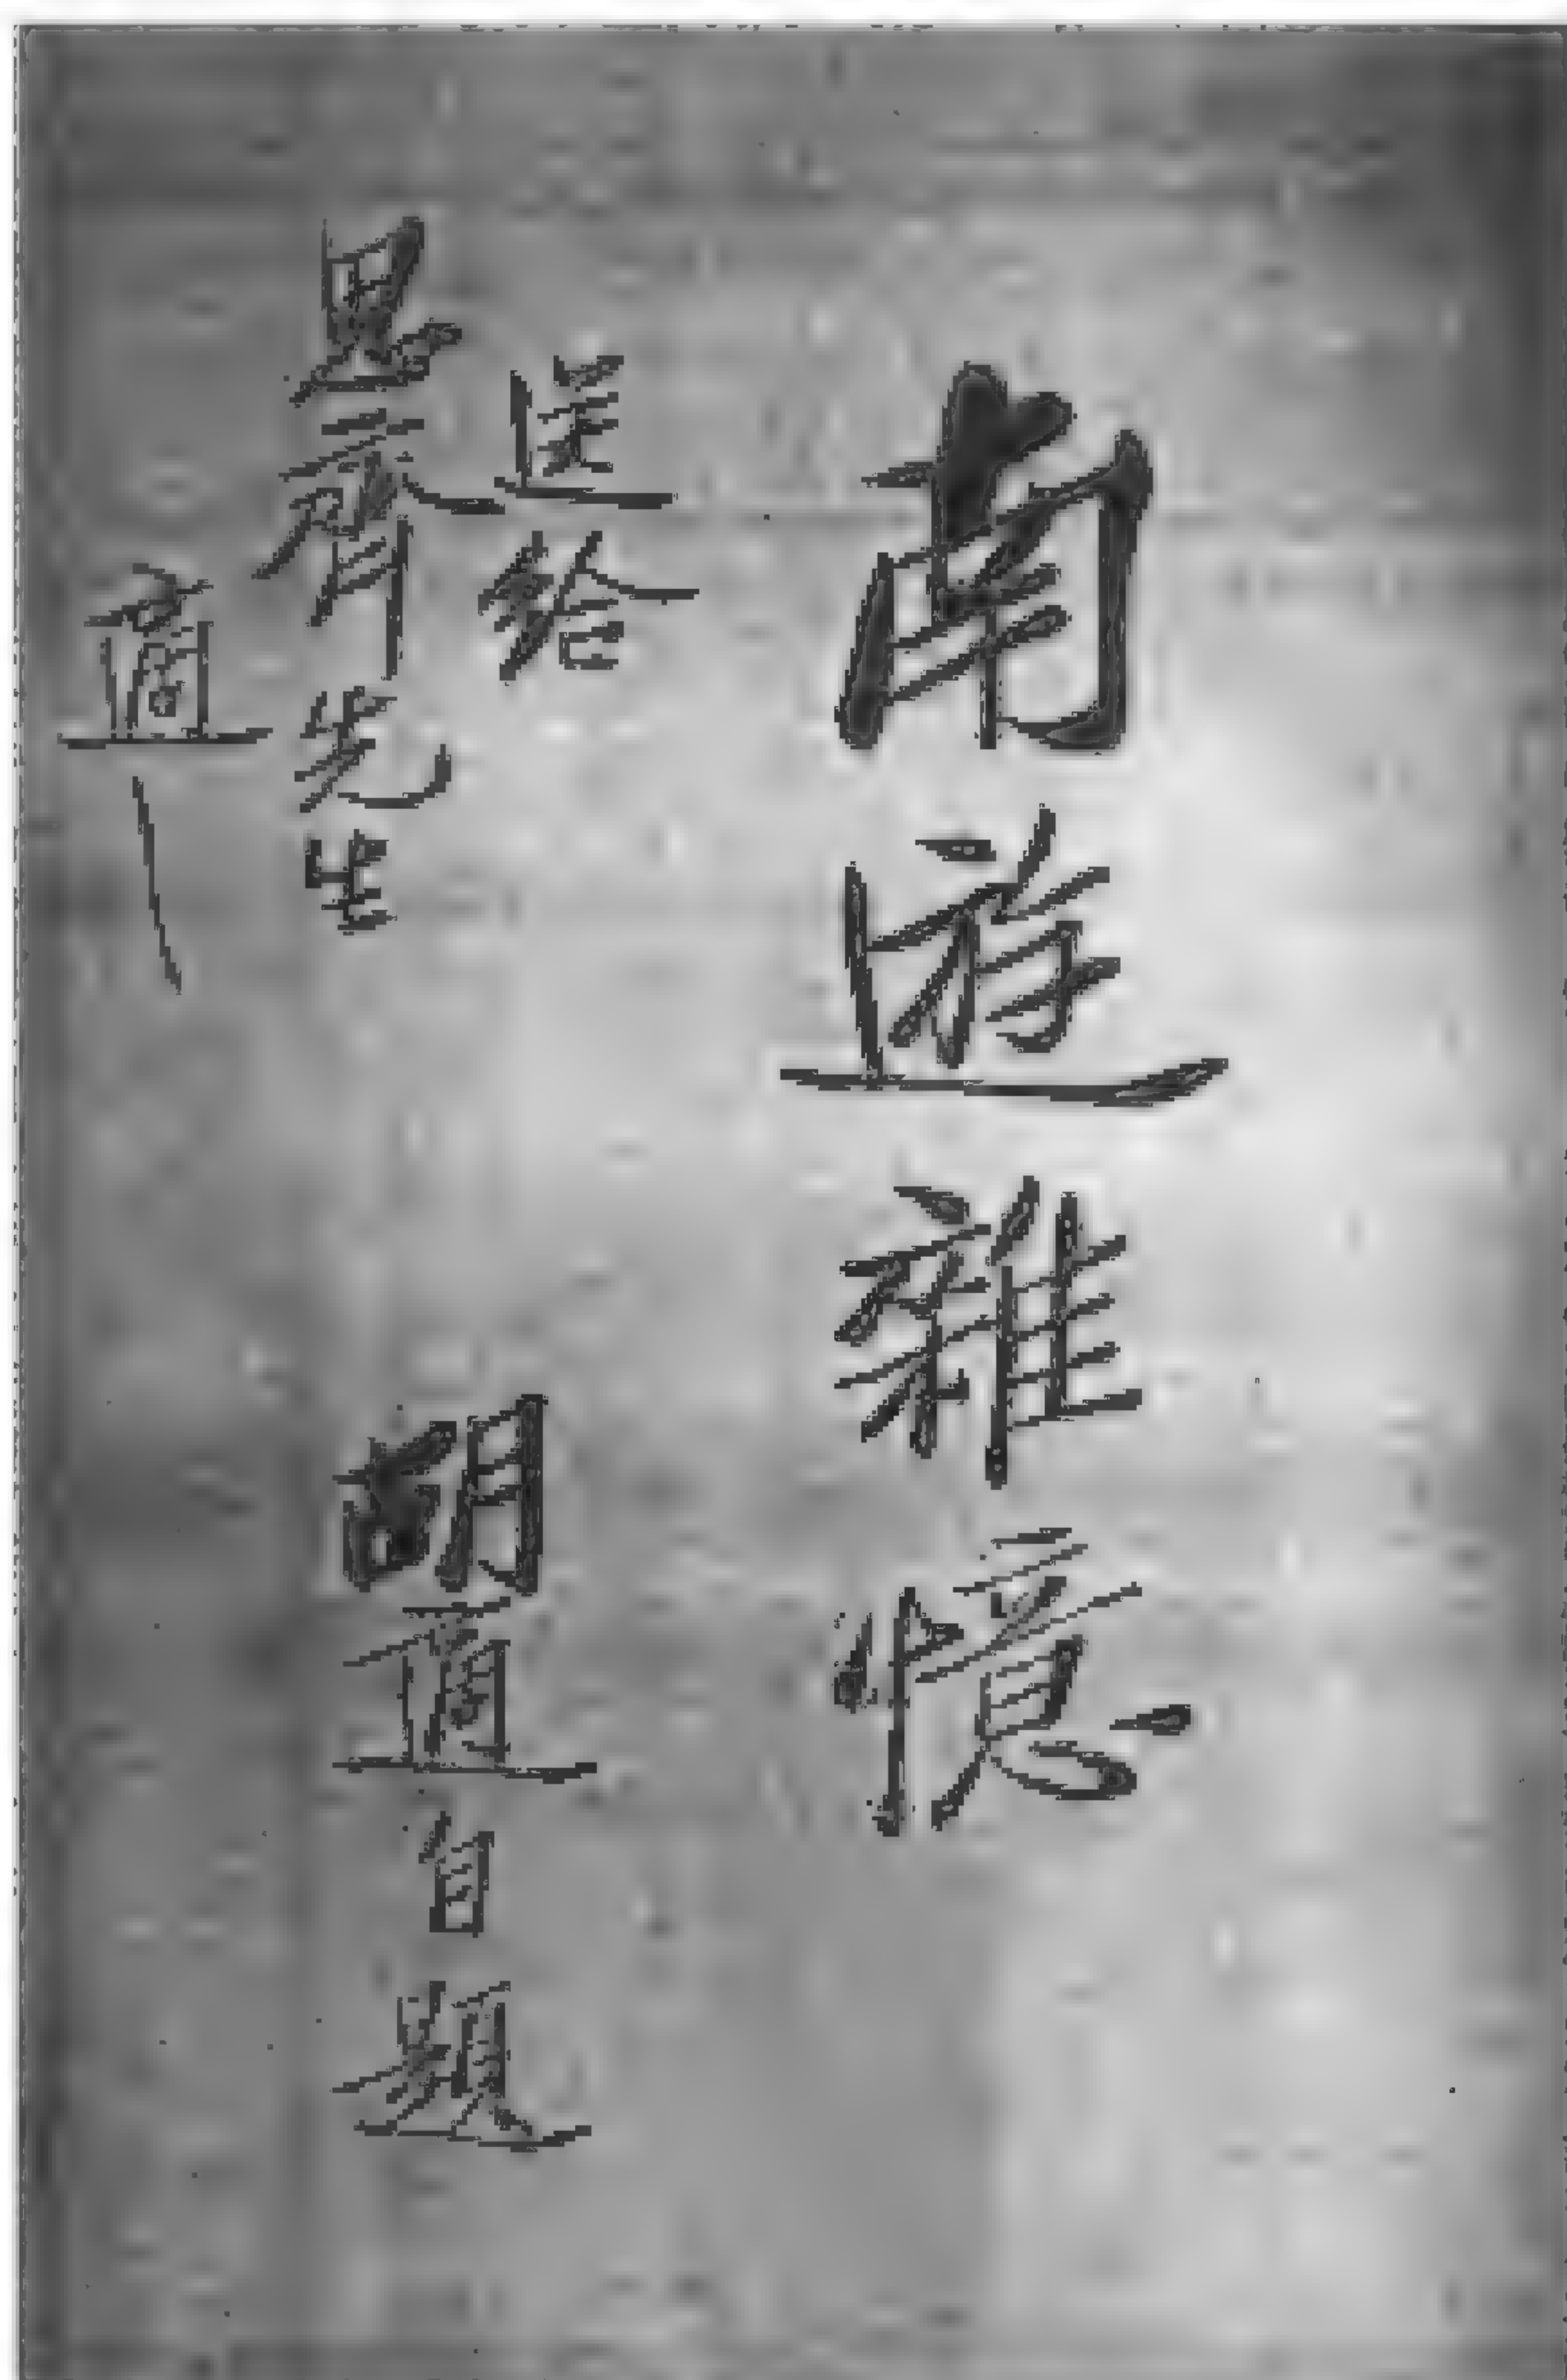 南遊雜憶
胡適自題
送給
先生
適